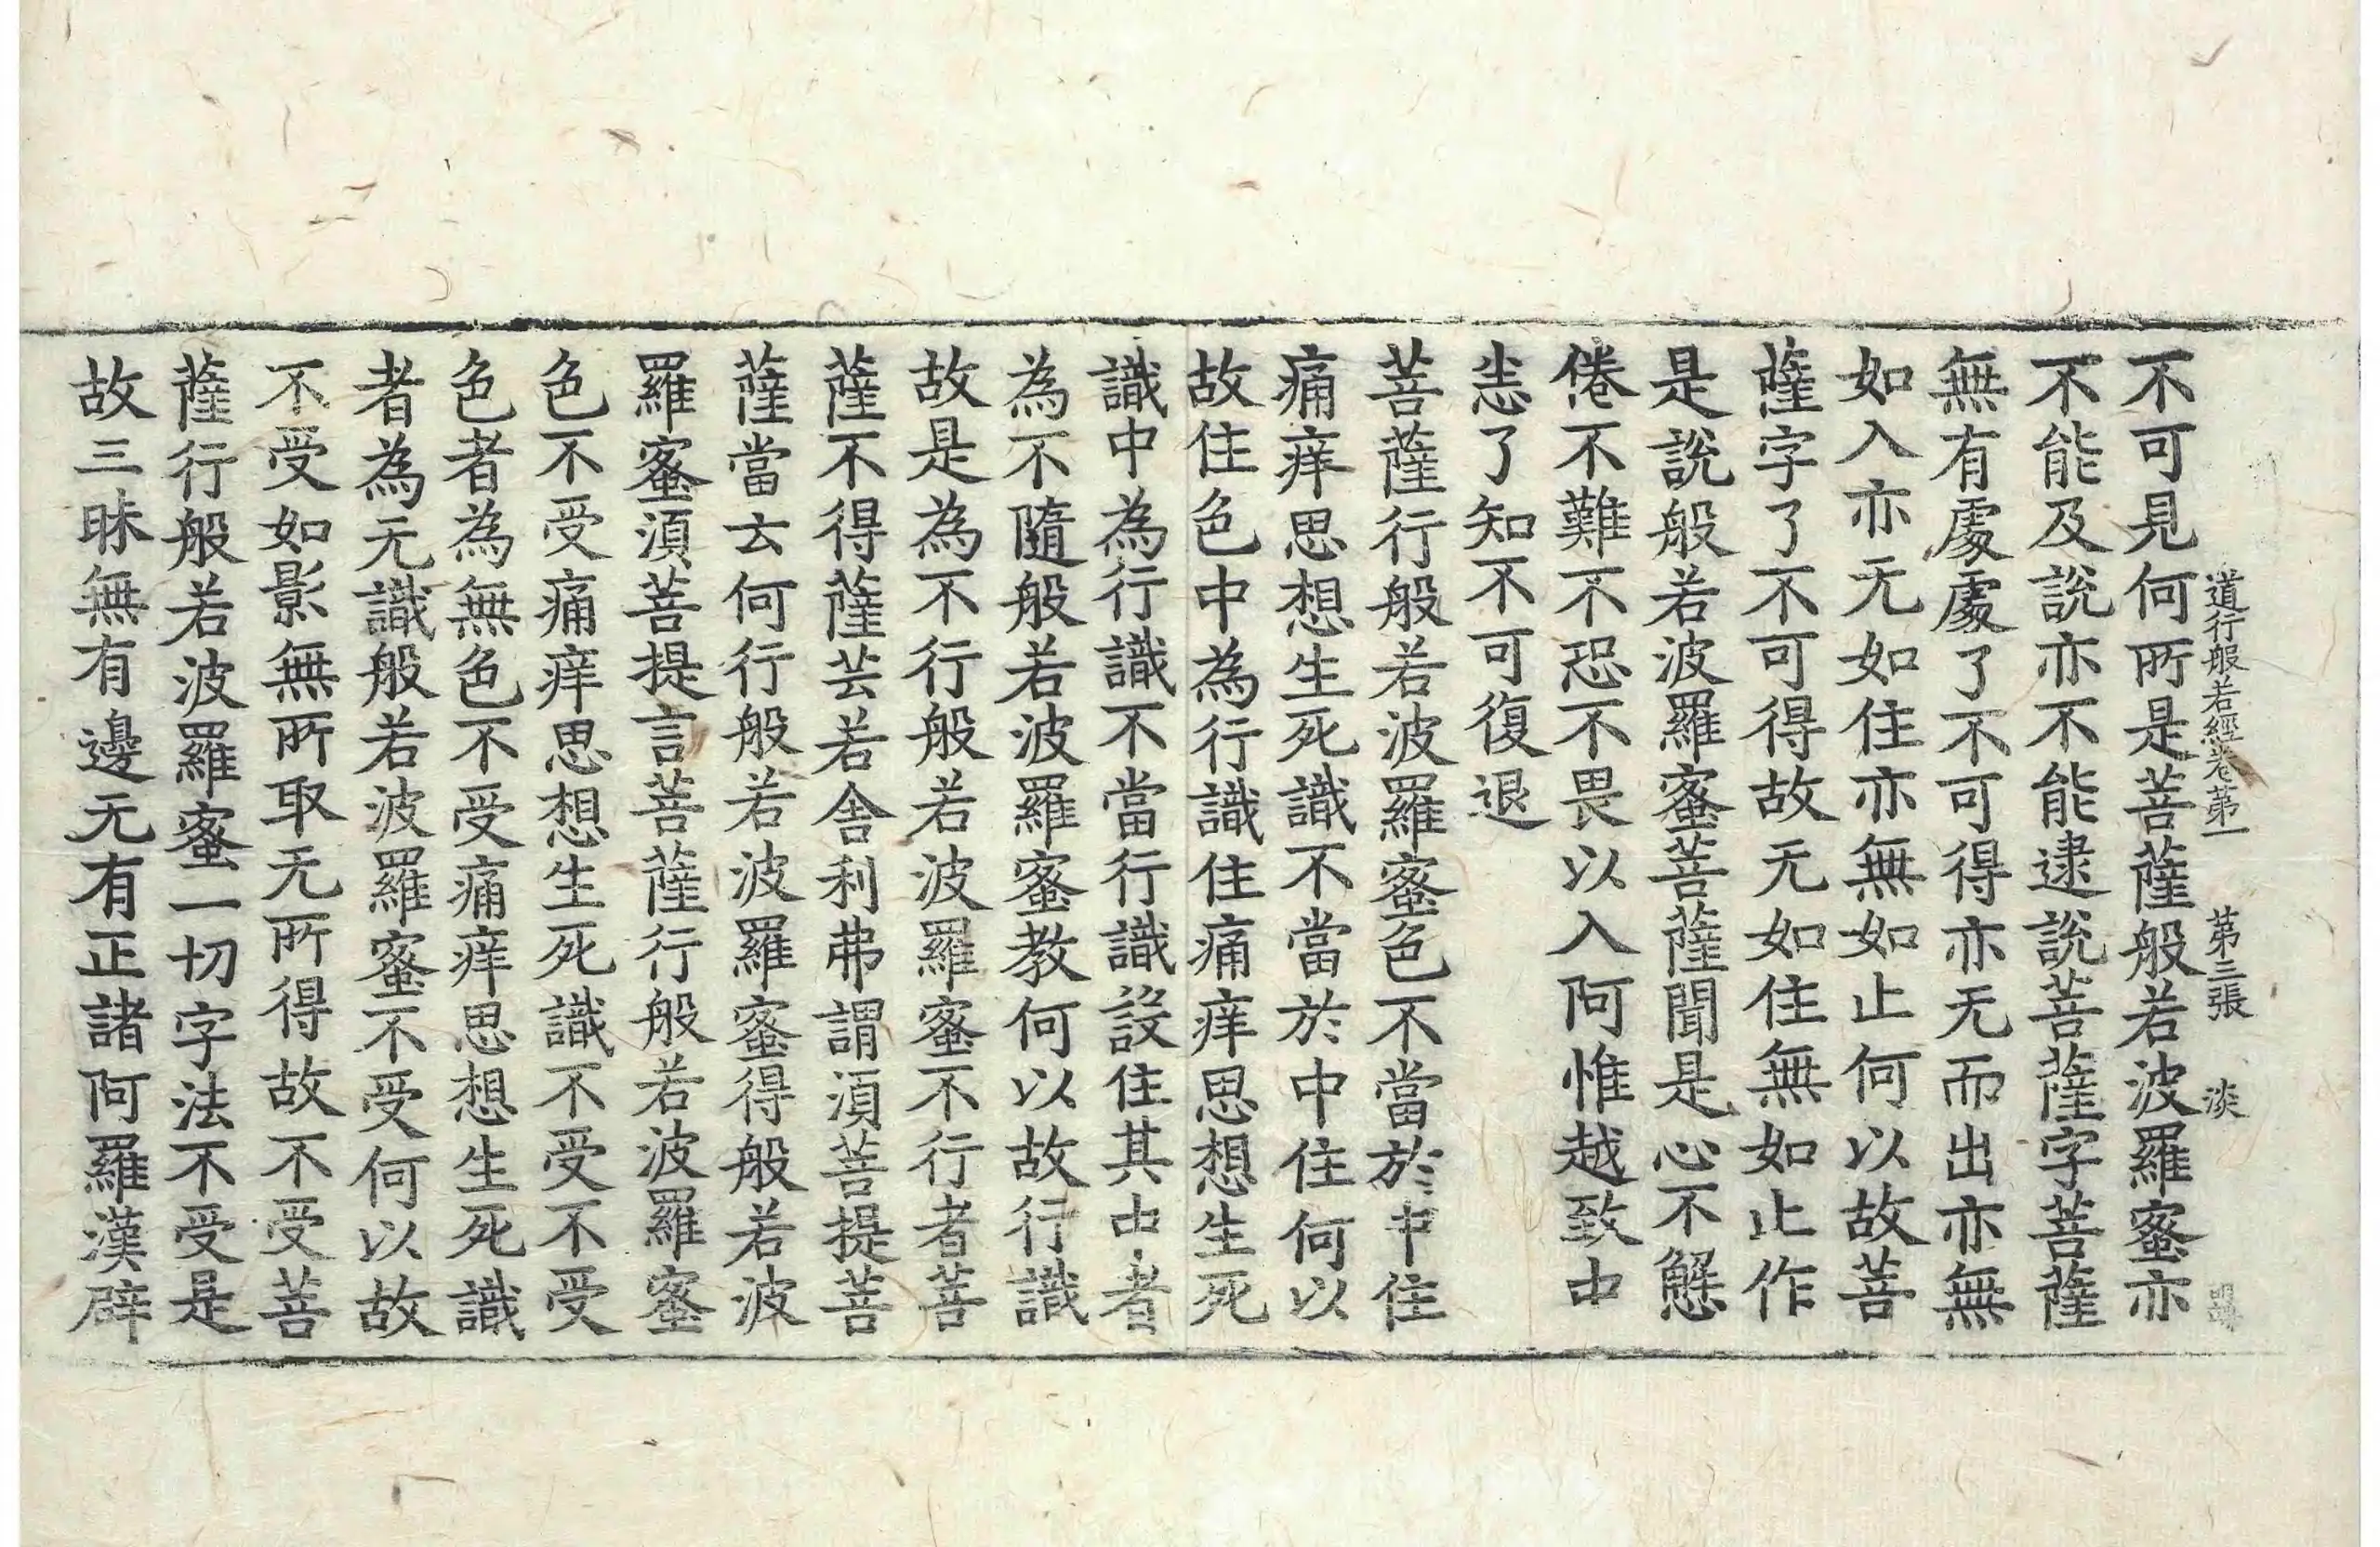 道行般若經卷第一 第三張 淡
不可見何所是菩薩般若波羅蜜亦
不能及說亦不能逮說菩薩字菩薩
無有處處了不可得亦无而出亦無
如入亦无如住亦無如止何以故菩
薩字了不可得故无如住無如止作
是說般若波羅蜜菩薩聞是心不懈
倦不難不恐不畏以入阿惟越致中
悉了知不可復退
菩薩行般若波羅蜜色不當於中住
痛痒思想生死識不當於中住何以
故住色中為行識住痛痒思想生死
識中為行識不當行識設住其中者
為不隨般若波羅蜜教何以故行識
故是為不行般若波羅蜜不行者菩
薩不得薩芸若舍利弗謂須菩提菩
薩當云何行般若波羅蜜得般若波
羅蜜須菩提言菩薩行般若波羅蜜
色不受痛痒思想生死識不受不受
色者為無色不受痛痒思想生死識
者為无識般若波羅蜜不受何以故
不受如影無所取无所得故不受菩
薩行般若波羅蜜一切字法不受是
故三昧無有邊无有正諸阿羅漢辟